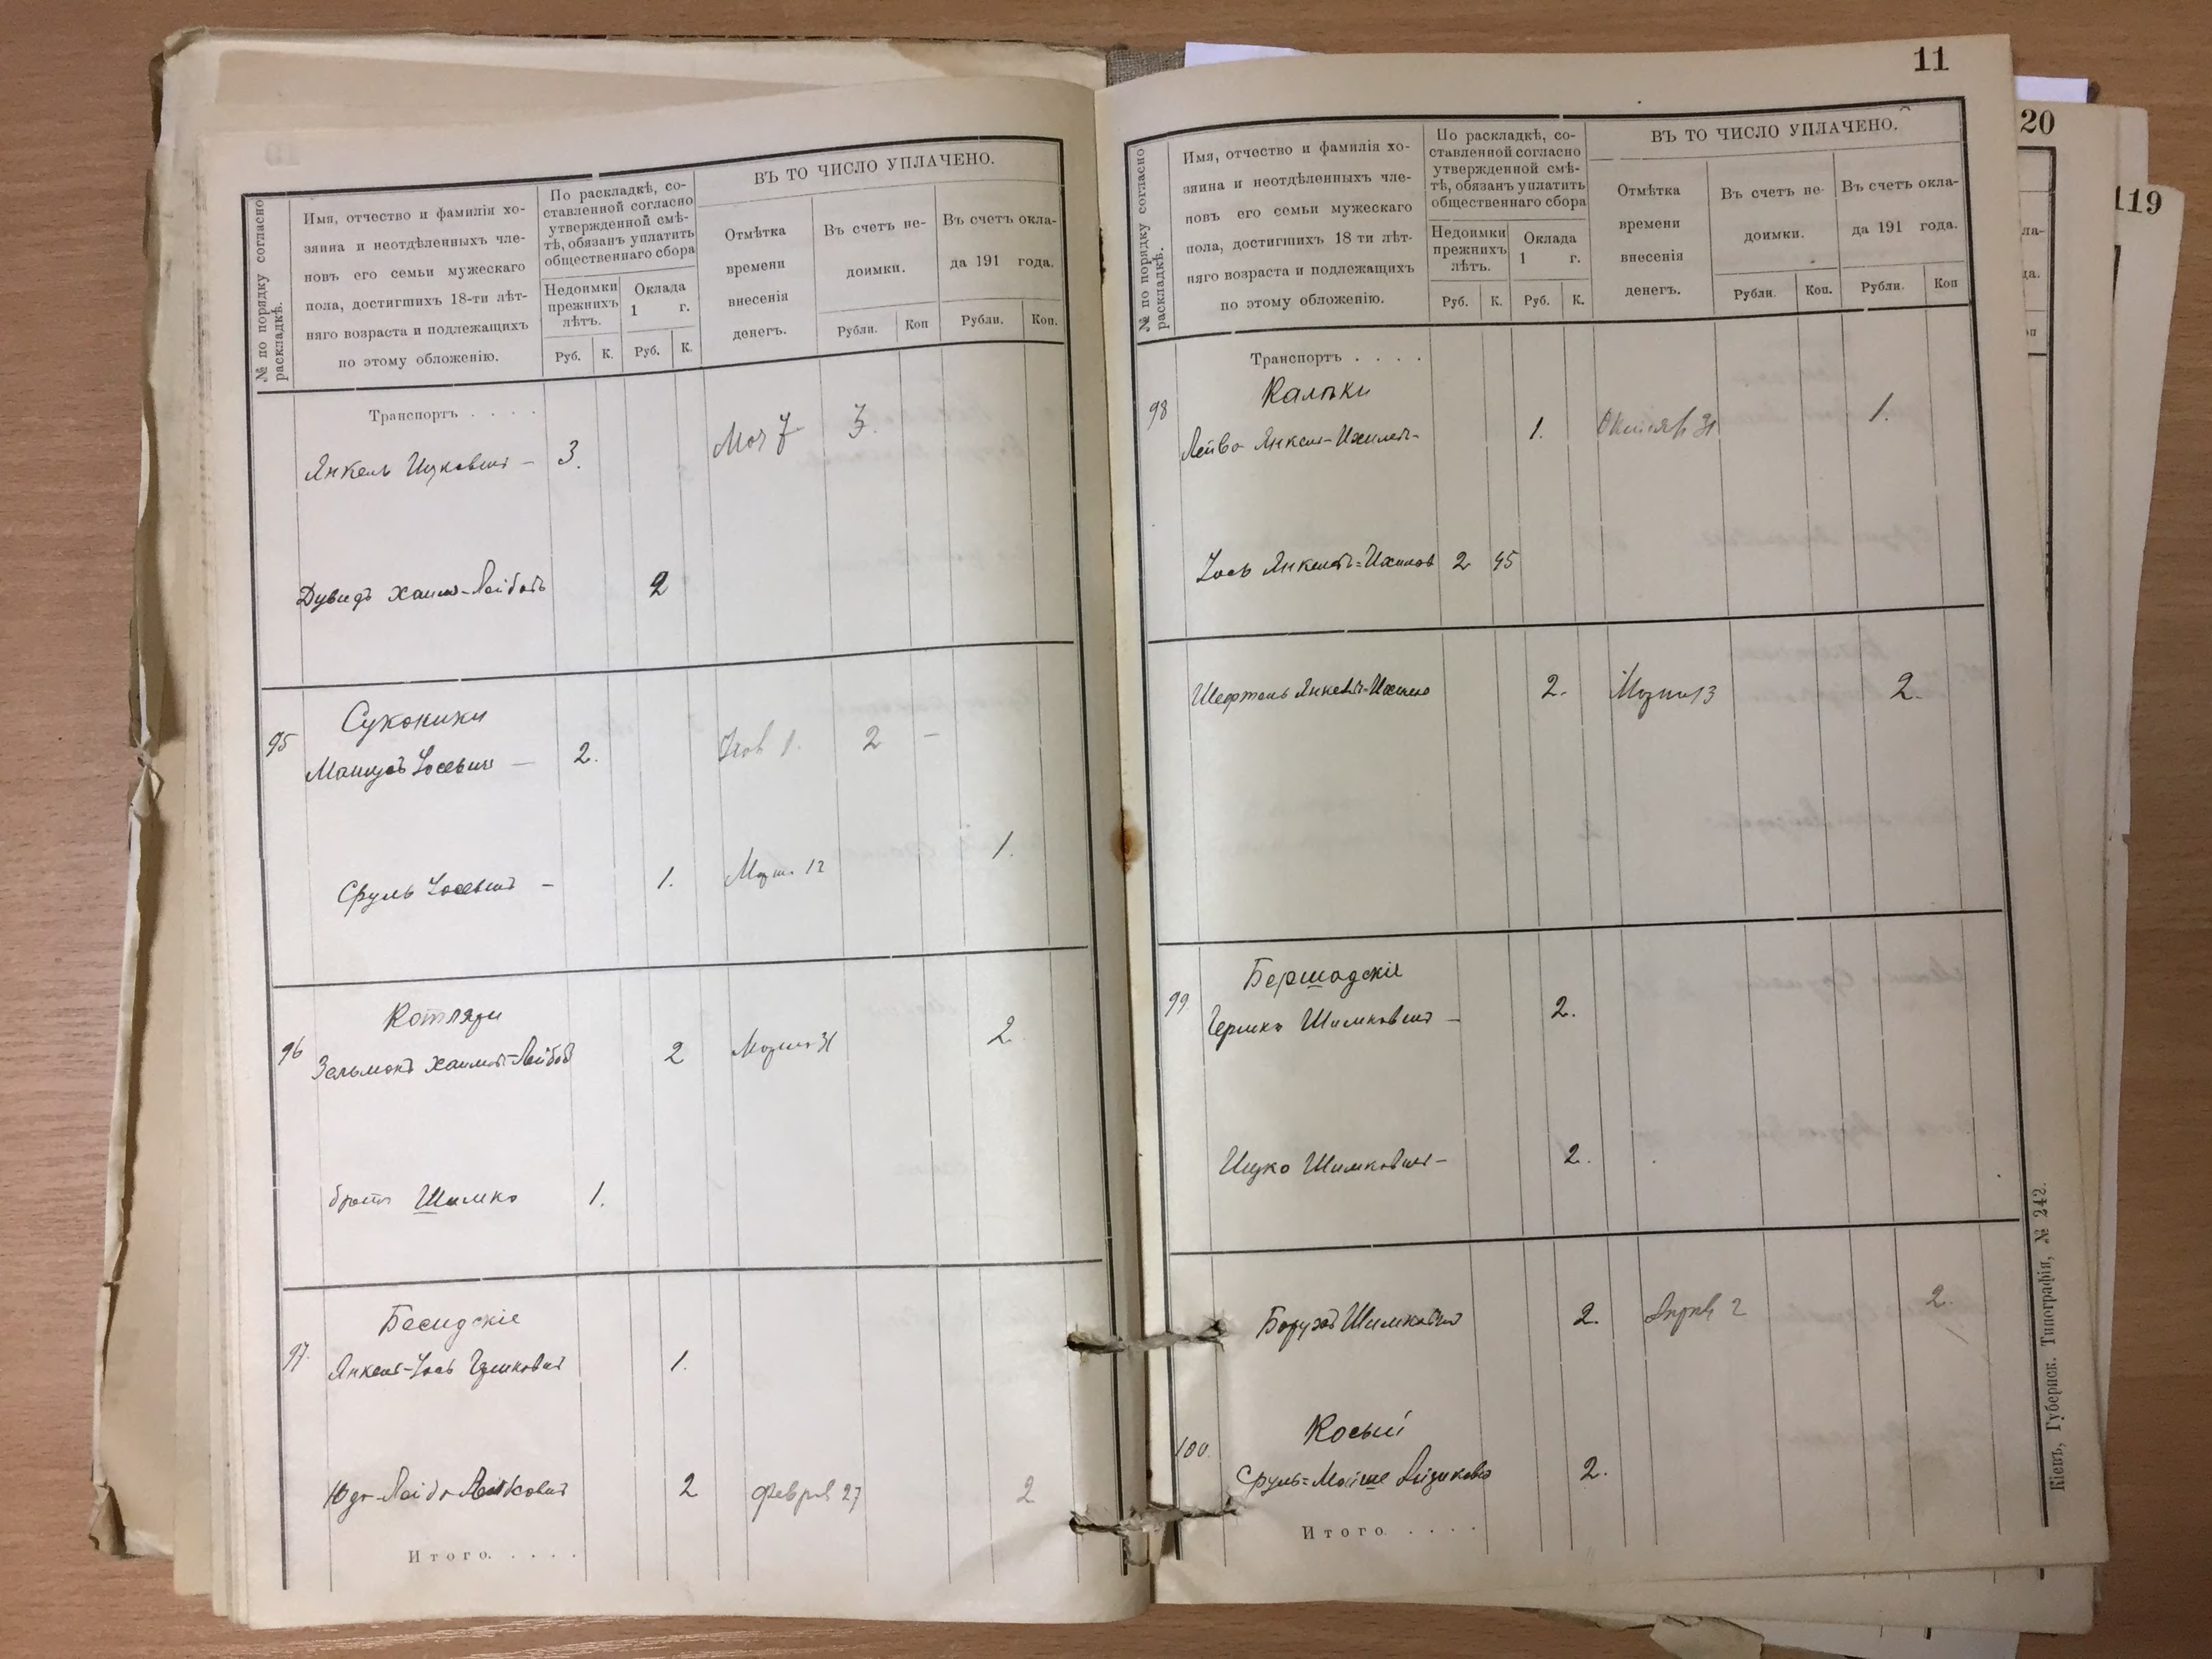 № по порядку согласно
раскладкѣ.
Имя, отчество и фамилія хо-
зяина и неотдѣленныхъ чле-
новъ его семьи мужескаго
пола, достигшихъ 18-ти лѣт-
няго возраста и подлежащихъ
по этому обложенію.
По раскладкѣ, со-
ставленной согласно
утвержденной смѣ-
тѣ, обязанъ уплатить
общественнаго сбора
Недоимки
прежнихъ
лѣтъ.
Оклада
1 г.
Руб. К. Руб. К.
ВЪ ТО ЧИСЛО УПЛАЧЕНО.
Отмѣтка
времени
внесенія
денегъ.
Въ счетъ не-
доимки.
Въ счетъ окла-
да 191 года.
Рубли. Коп Рубли. Коп.
Транспортъ . . . .
Янкель Ицковичъ — 3. 3.
Дувидъ Хаимъ-Лейбовъ 2
95
Суконики
Іосевичъ — 2. 2 —
Сруль Іосевичъ — 1. 1.
96
Котляри
Зельманъ Хаимъ-Лейбов 2 Марта 31 2
братъ Шимко 1.
97.
Бесидскіе
Янкель-Іось 1.
Юдо-Лейба 2 Феврал 27 2
Итого. . . . .
11
№ по порядку согласно
раскладкѣ.
Имя, отчество и фамилія хо-
зяина и неотдѣленныхъ чле-
новъ его семьи мужескаго
пола, достигшихъ 18 ти лѣт-
няго возраста и подлежащихъ
по этому обложенію.
По раскладкѣ, со-
ставленной согласно
утвержденной смѣ-
тѣ, обязанъ уплатить
общественнаго сбора
Недоимки
прежнихъ
лѣтъ.
Оклада
1 г.
Руб. К. Руб. К.
ВЪ ТО ЧИСЛО УПЛАЧЕНО.
Отмѣтка
времени
внесенія
денегъ.
Въ счетъ не-
доимки.
Въ счетъ окла-
да 191 года.
Рубли. Коп. Рубли. Коп
Транспортъ . . . .
98
Лейба Янкель-Ихилев- 1. Октября 31 1.
Іось Янкель-Ихилев 2 45
Шефтель Янкель-Ихилев 2. Марта 13 2.
99
Бершадскіе
Гершко Шимковичъ — 2.
Ицко Шимковичъ — 2.
Борухъ Шимковичъ 2. Апрѣл 2 2.
100.
Косый
Сруль-Мойше Айзиковъ 2.
Итого . . . .
Кіевъ, Губернск. Типографія, № 242.
20
119